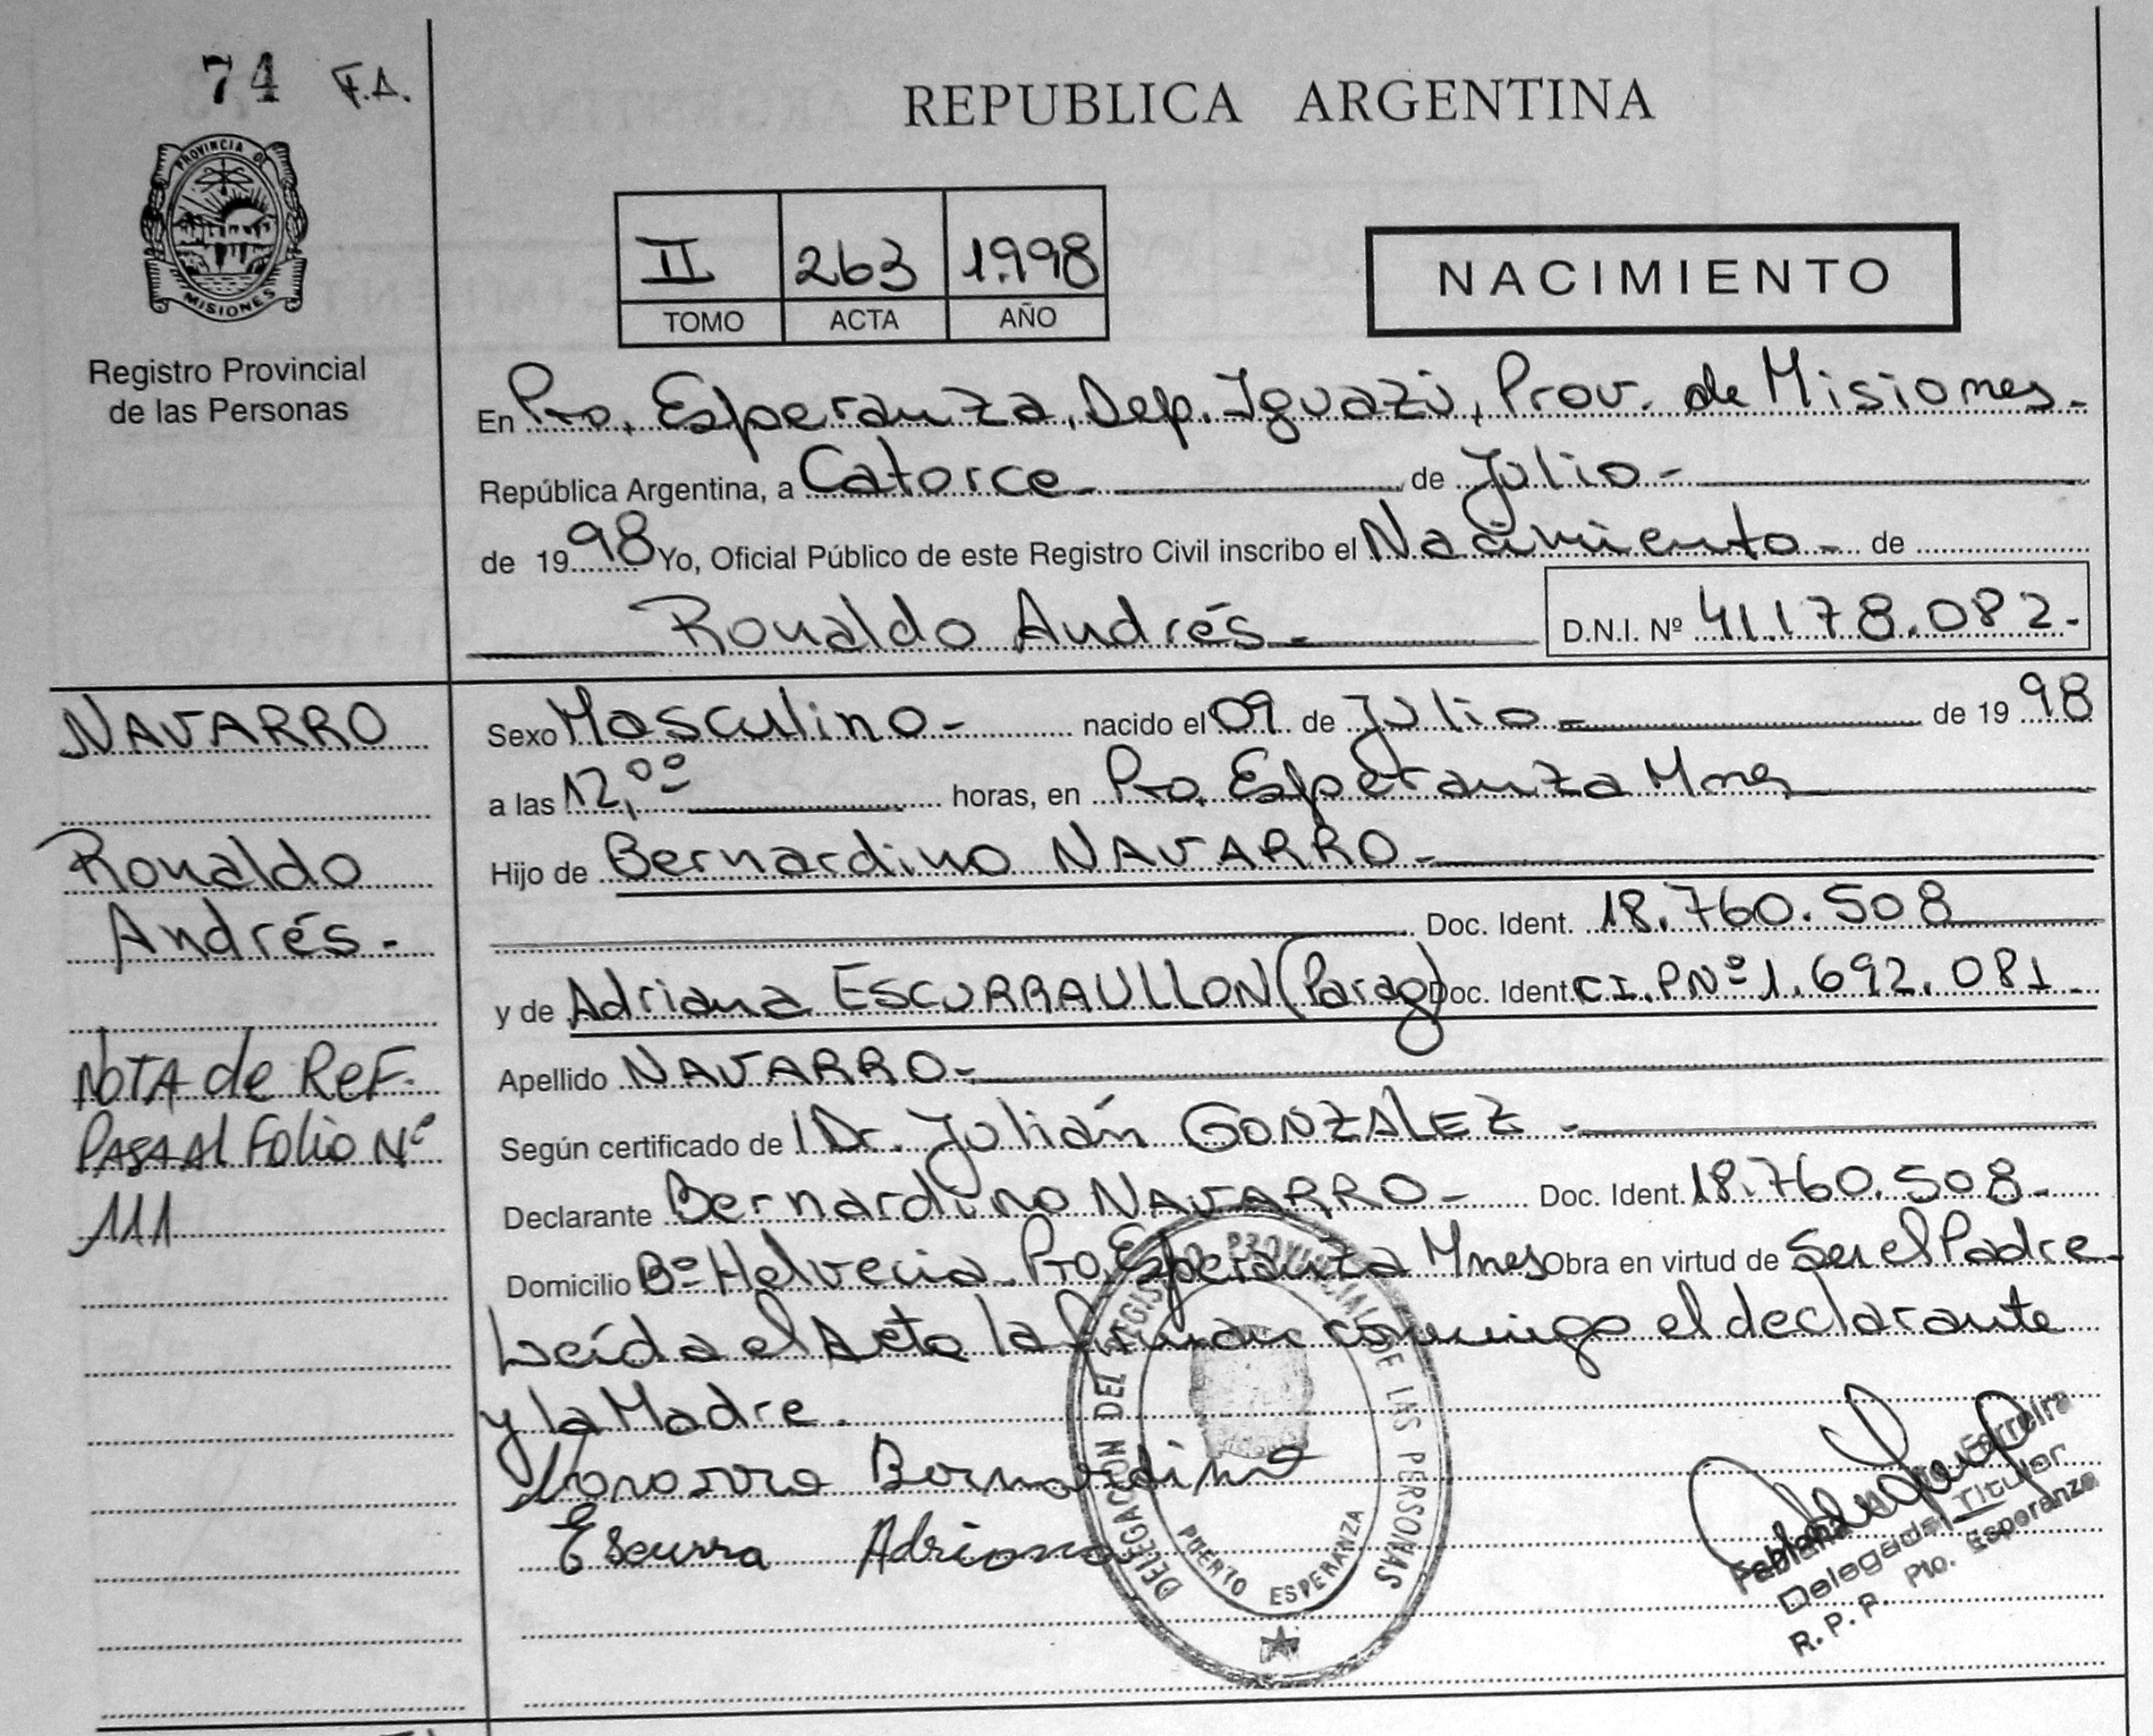 74 F.A.
PROVINCIA D
MISIONES
Registro Provincial
de las Personas
REPUBLICA ARGENTINA
II 263 1.998
TOMO ACTA AÑO
NACIMIENTO
En Pto. Esperanza, Dep. Iguazú, Prov. de Misiones.
República Argentina, a Catorce de Julio
de 1998 Yo, Oficial Público de este Registro Civil inscribo el Nacimiento de
Ronaldo Andrés.
D.N.I. Nº 41.178.082.
NAVARRO
Ronaldo
Andrés.
NOTA de ReF.
PASA Al Folio Nº
111
Sexo Masculino nacido el 09 de Julio de 1998
a las 12,00 horas, en Pto. Esperanza Mnes
Hijo de Bernardino NAVARRO
Doc. Ident. 18.760.508
y de Adriana ESCURRAULLON (Parag) Doc. Ident. C.I.P Nº 1.692.081.
Apellido NAVARRO
Según certificado de Dr. Julián GONZALEZ
Declarante Bernardino NAVARRO Doc. Ident. 18.760.508
Domicilio Bº Helvecia Pto. Esperanza Mnes Obra en virtud de Ser el Padre
Leída el Acta la firman conmigo el declarante
y la Madre.
Navarro Bernardino
Escurra Adriana
DELEGACION DEL REGISTRO PROVINCIAL DE LAS PERSONAS
PUERTO ESPERANZA
Ferreira
Delegada Titular
R.P.P. Pto. Esperanza